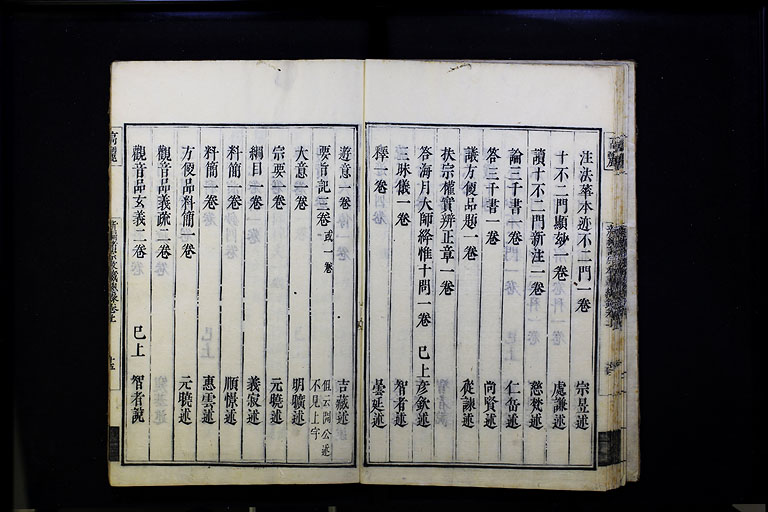 注法華本迹不二門一卷 宗昱述
十不二門顯玅一卷 處謙述
讀十不二門新注一卷 慈梵述
論三千書一卷 仁岳述
答三千書一卷 尚賢述
議方便品題一卷 從諫述
扶宗權實辨正章一卷
答海月大師絳惟十問一卷 已上彥欽述
三昧儀一卷 智者述
釋一卷 曇延述
遊意一卷 吉藏述
要旨記三卷 或一卷 但云開公述 不見上字
大意一卷 明曠述
宗要一卷 元曉述
綱目一卷 義寂述
料簡一卷 順憬述
料簡一卷 惠雲述
方便品料簡一卷 元曉述
觀音品義疏二卷
觀音品玄義二卷 已上 智者說
高麗